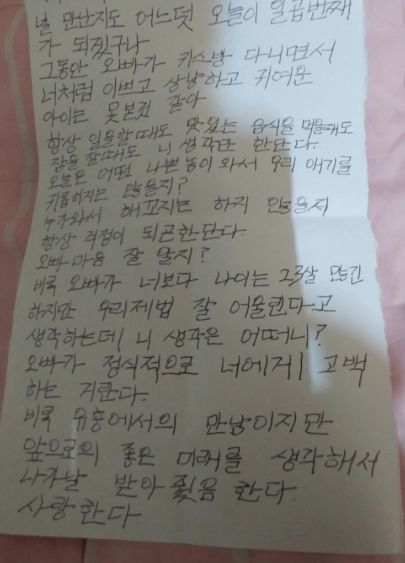 널 만난지도 어느덧 오늘이 일곱번째
가 되겠구나
그동안 오빠가 키스방 다니면서
너처럼 이쁘고 상냥하고 귀여운
아이는 못본것 같아
항상 일을할때도 맛있는 음식을 먹을때도
잠을 잘때도 니 생각만 한단다.
오늘은 어떤 나쁜놈이 와서 우리 애기를
괴롭히지는 않을지?
누가와서 해꼬지는 하지 않을지
항상 걱정이 되곤한단다.
오빠마음 잘 알지?
비록 오빠가 너보다 나이는 많긴
하지만 우리제법 잘 어울린다고
생각하는데 니 생각은 어떠니?
오빠가 정식적으로 너에게 고백
하는 거란다.
비록 유흥에서의 만남이지만
앞으로의 좋은 미래를 생각해서
나가날 받아줬음 한다.
사랑한다.